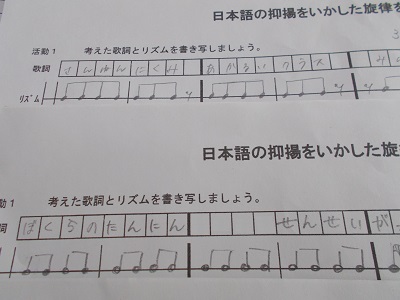 日本語の抑揚をいかした旋律を
3
活動1 考えた歌詞とリズムを書き写しましょう。
歌詞 さんねんにくみ あかるいクラス みん
リズム
日本語の抑揚をいかした旋
動1 考えた歌詞とリズムを書き写しましょう。
詞 ぼくらのたんにん せんせいが
ズム